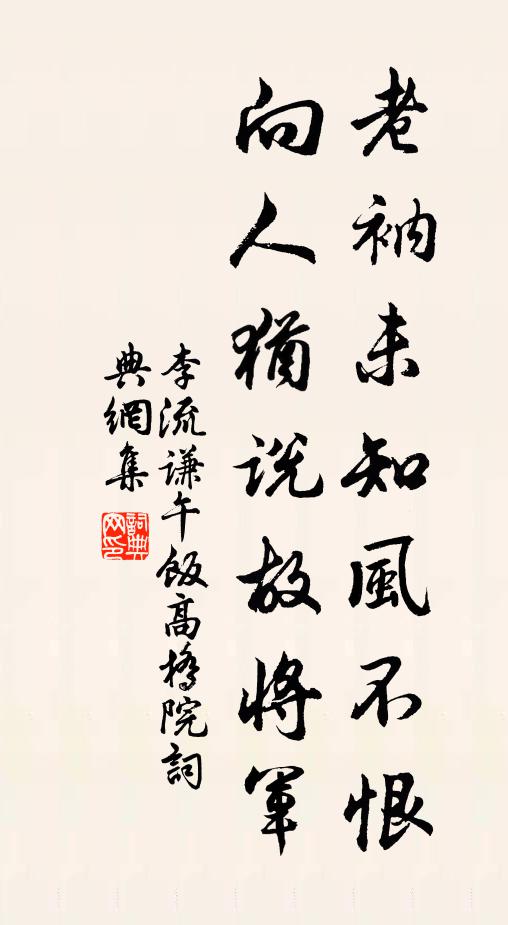 老衲未知風不恨
向人猶說故將軍
李流谦午飯高橋院詞
典網集
詞典網印